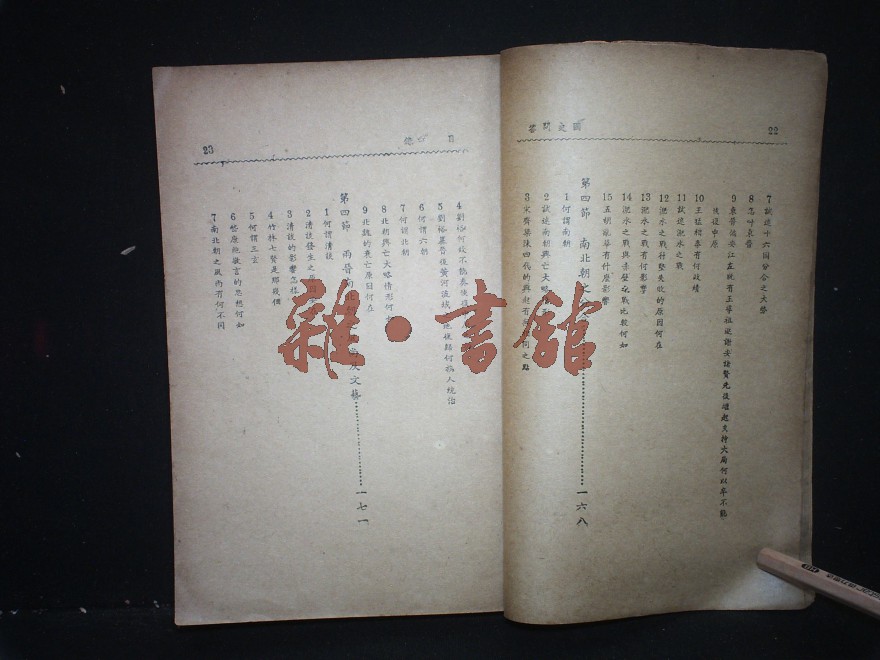 22
國史問答
7 試述十六國分合之大勢
8 怎叫衣襲
9 東晉偏安江左統有王導祖逖謝安諸賢先後繼起支持大局何以卒不能
恢復中原
10 王猛相秦有何政績
11 試述淝水之戰
12 淝水之戰苻堅失敗的原因何在
13 淝水之戰有何影響
14 淝水之戰與赤壁之戰比較何如
15 五胡亂華有什麼影響
第四節 南北朝
一六八
1 何謂南朝
2 試述南朝興亡大略
3 宋齊梁陳四代的興起有 同之點
23
目 總
4 劉裕何故不能奏
5 劉裕篡晉後黃河流域 何族人統治
6 何謂六朝
7 何謂北朝
8 北朝興亡大略情形何
9 北魏的衰亡原因何在
第四節 兩晉南北 及文藝
一七一
1 何謂清談
2 清談發生之原因
3 清談的影響怎樣
4 竹林七賢是那幾個
5 何謂三玄
6 嵇康鮑敬言的思想何如
7 南北朝之風尚有何不同
雜·書館